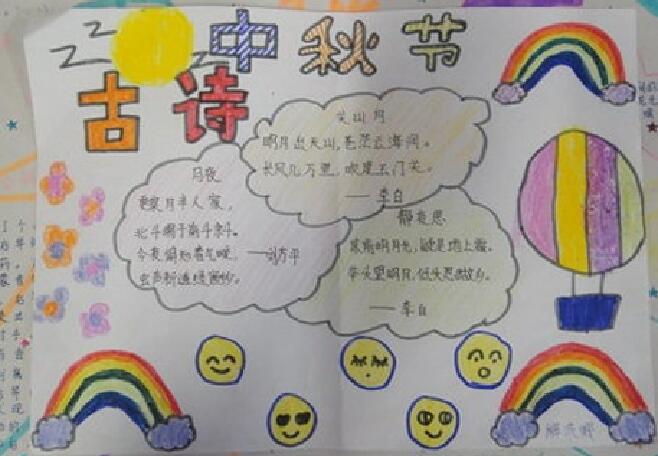 中秋节
古诗
关山月
明月出天山,苍茫云海间。
长风几万里,吹度玉门关。
——李白
月夜
更深月半人家,
北斗阑干南斗斜。
今夜偏知春气暖,——刘方平
虫声新透绿窗纱。
静夜思
床前明月光,疑是地上霜。
举头望明月,低头思故乡。
——李白